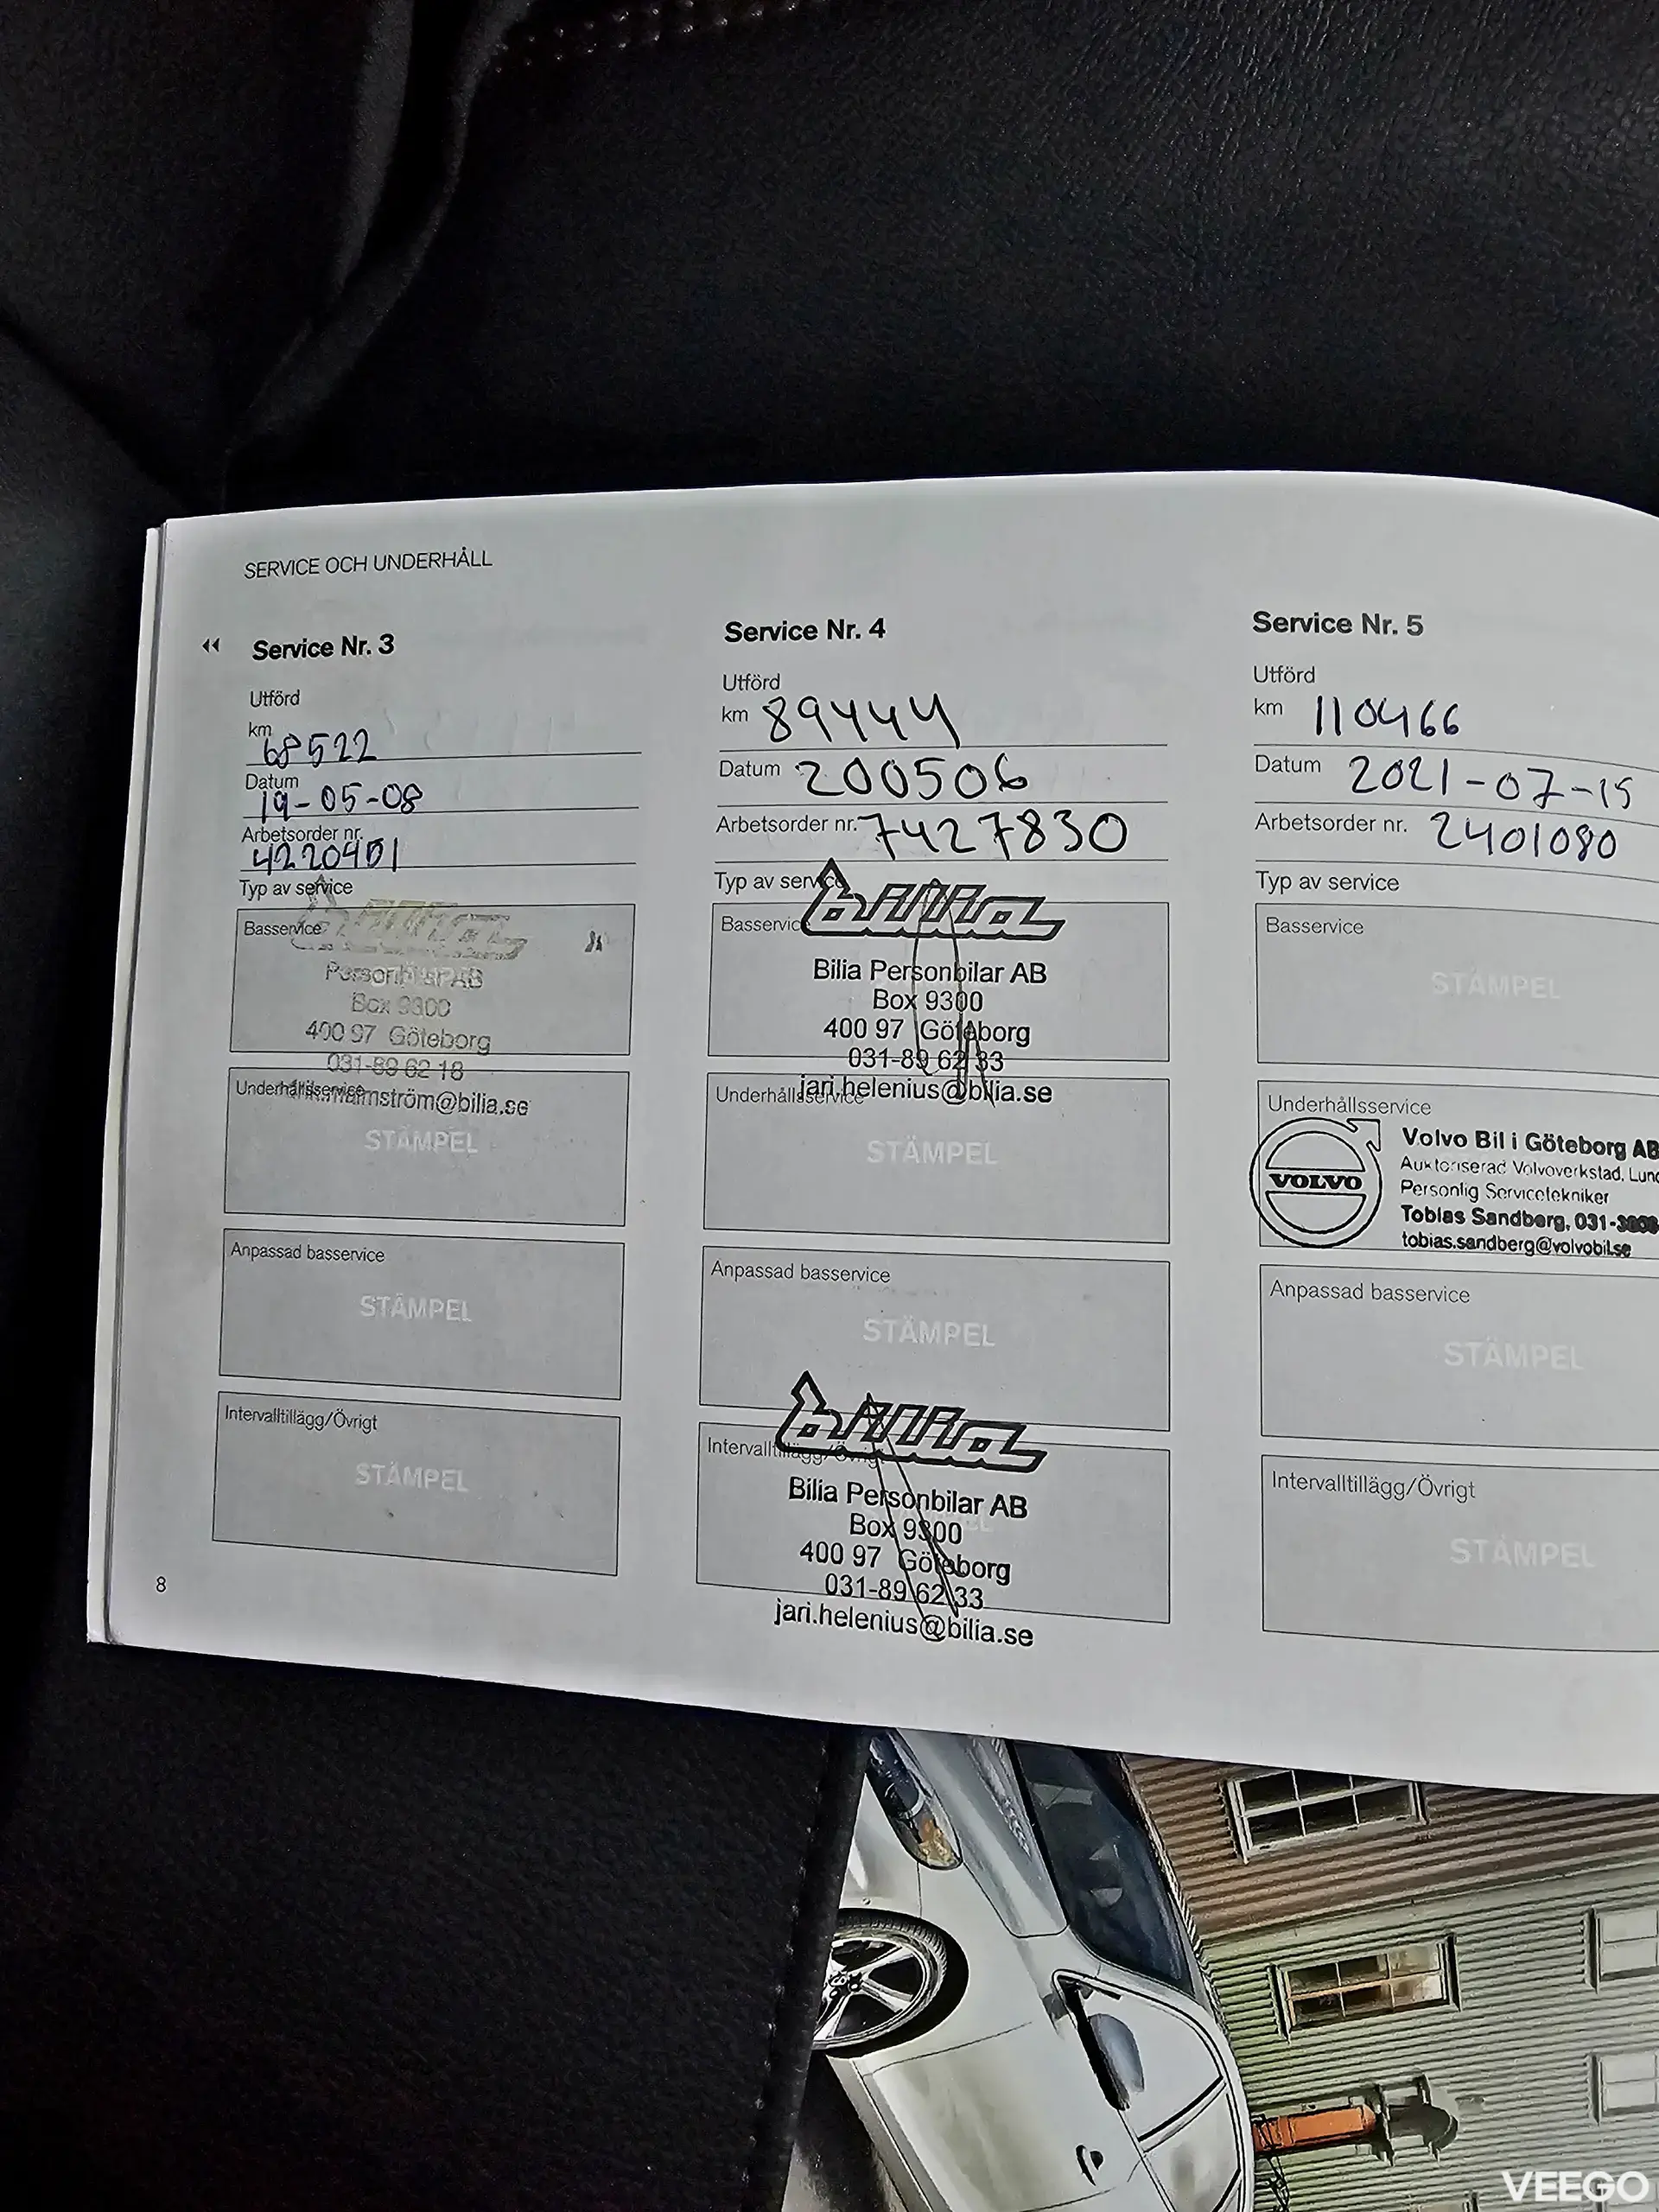 SERVICE OCH UNDERHÅLL
Service Nr. 3
Utförd
km 68522
Datum 19-05-08
Arbetsorder nr.
Typ av service
Basservice
Personbilar AB
Box 9300
400 97 Göteborg
031-89 62 18
Underhållsservice
STÄMPEL
Anpassad basservice
STÄMPEL
Intervalltillägg/Övrigt
STÄMPEL
8
Service Nr. 4
Utförd
km 89444
Datum 200506
Arbetsorder nr. 7427830
Typ av service
bilia
Basservice
Bilia Personbilar AB
Box 9300
400 97 Göteborg
031-89 62 33
jari.helenius@bilia.se
Underhållsservice
STÄMPEL
Anpassad basservice
STÄMPEL
bilia
Intervalltillägg/Övrigt
Bilia Personbilar AB
Box 9300
400 97 Göteborg
031-89 62 33
jari.helenius@bilia.se
Service Nr. 5
Utförd
km 110466
Datum 2021-07-15
Arbetsorder nr. 2401080
Typ av service
Basservice
STÄMPEL
Underhållsservice
VOLVO
Volvo Bil i Göteborg AB
Auktoriserad Volvoverkstad,
Personlig Servicetekniker
Tobias Sandberg, 031-
tobias.sandberg@volvobil.se
Anpassad basservice
STÄMPEL
Intervalltillägg/Övrigt
STÄMPEL
VEEGO